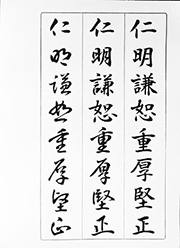 仁明謙恕重厚堅正
仁明謙恕重厚堅正
仁明谦恕重厚坚正